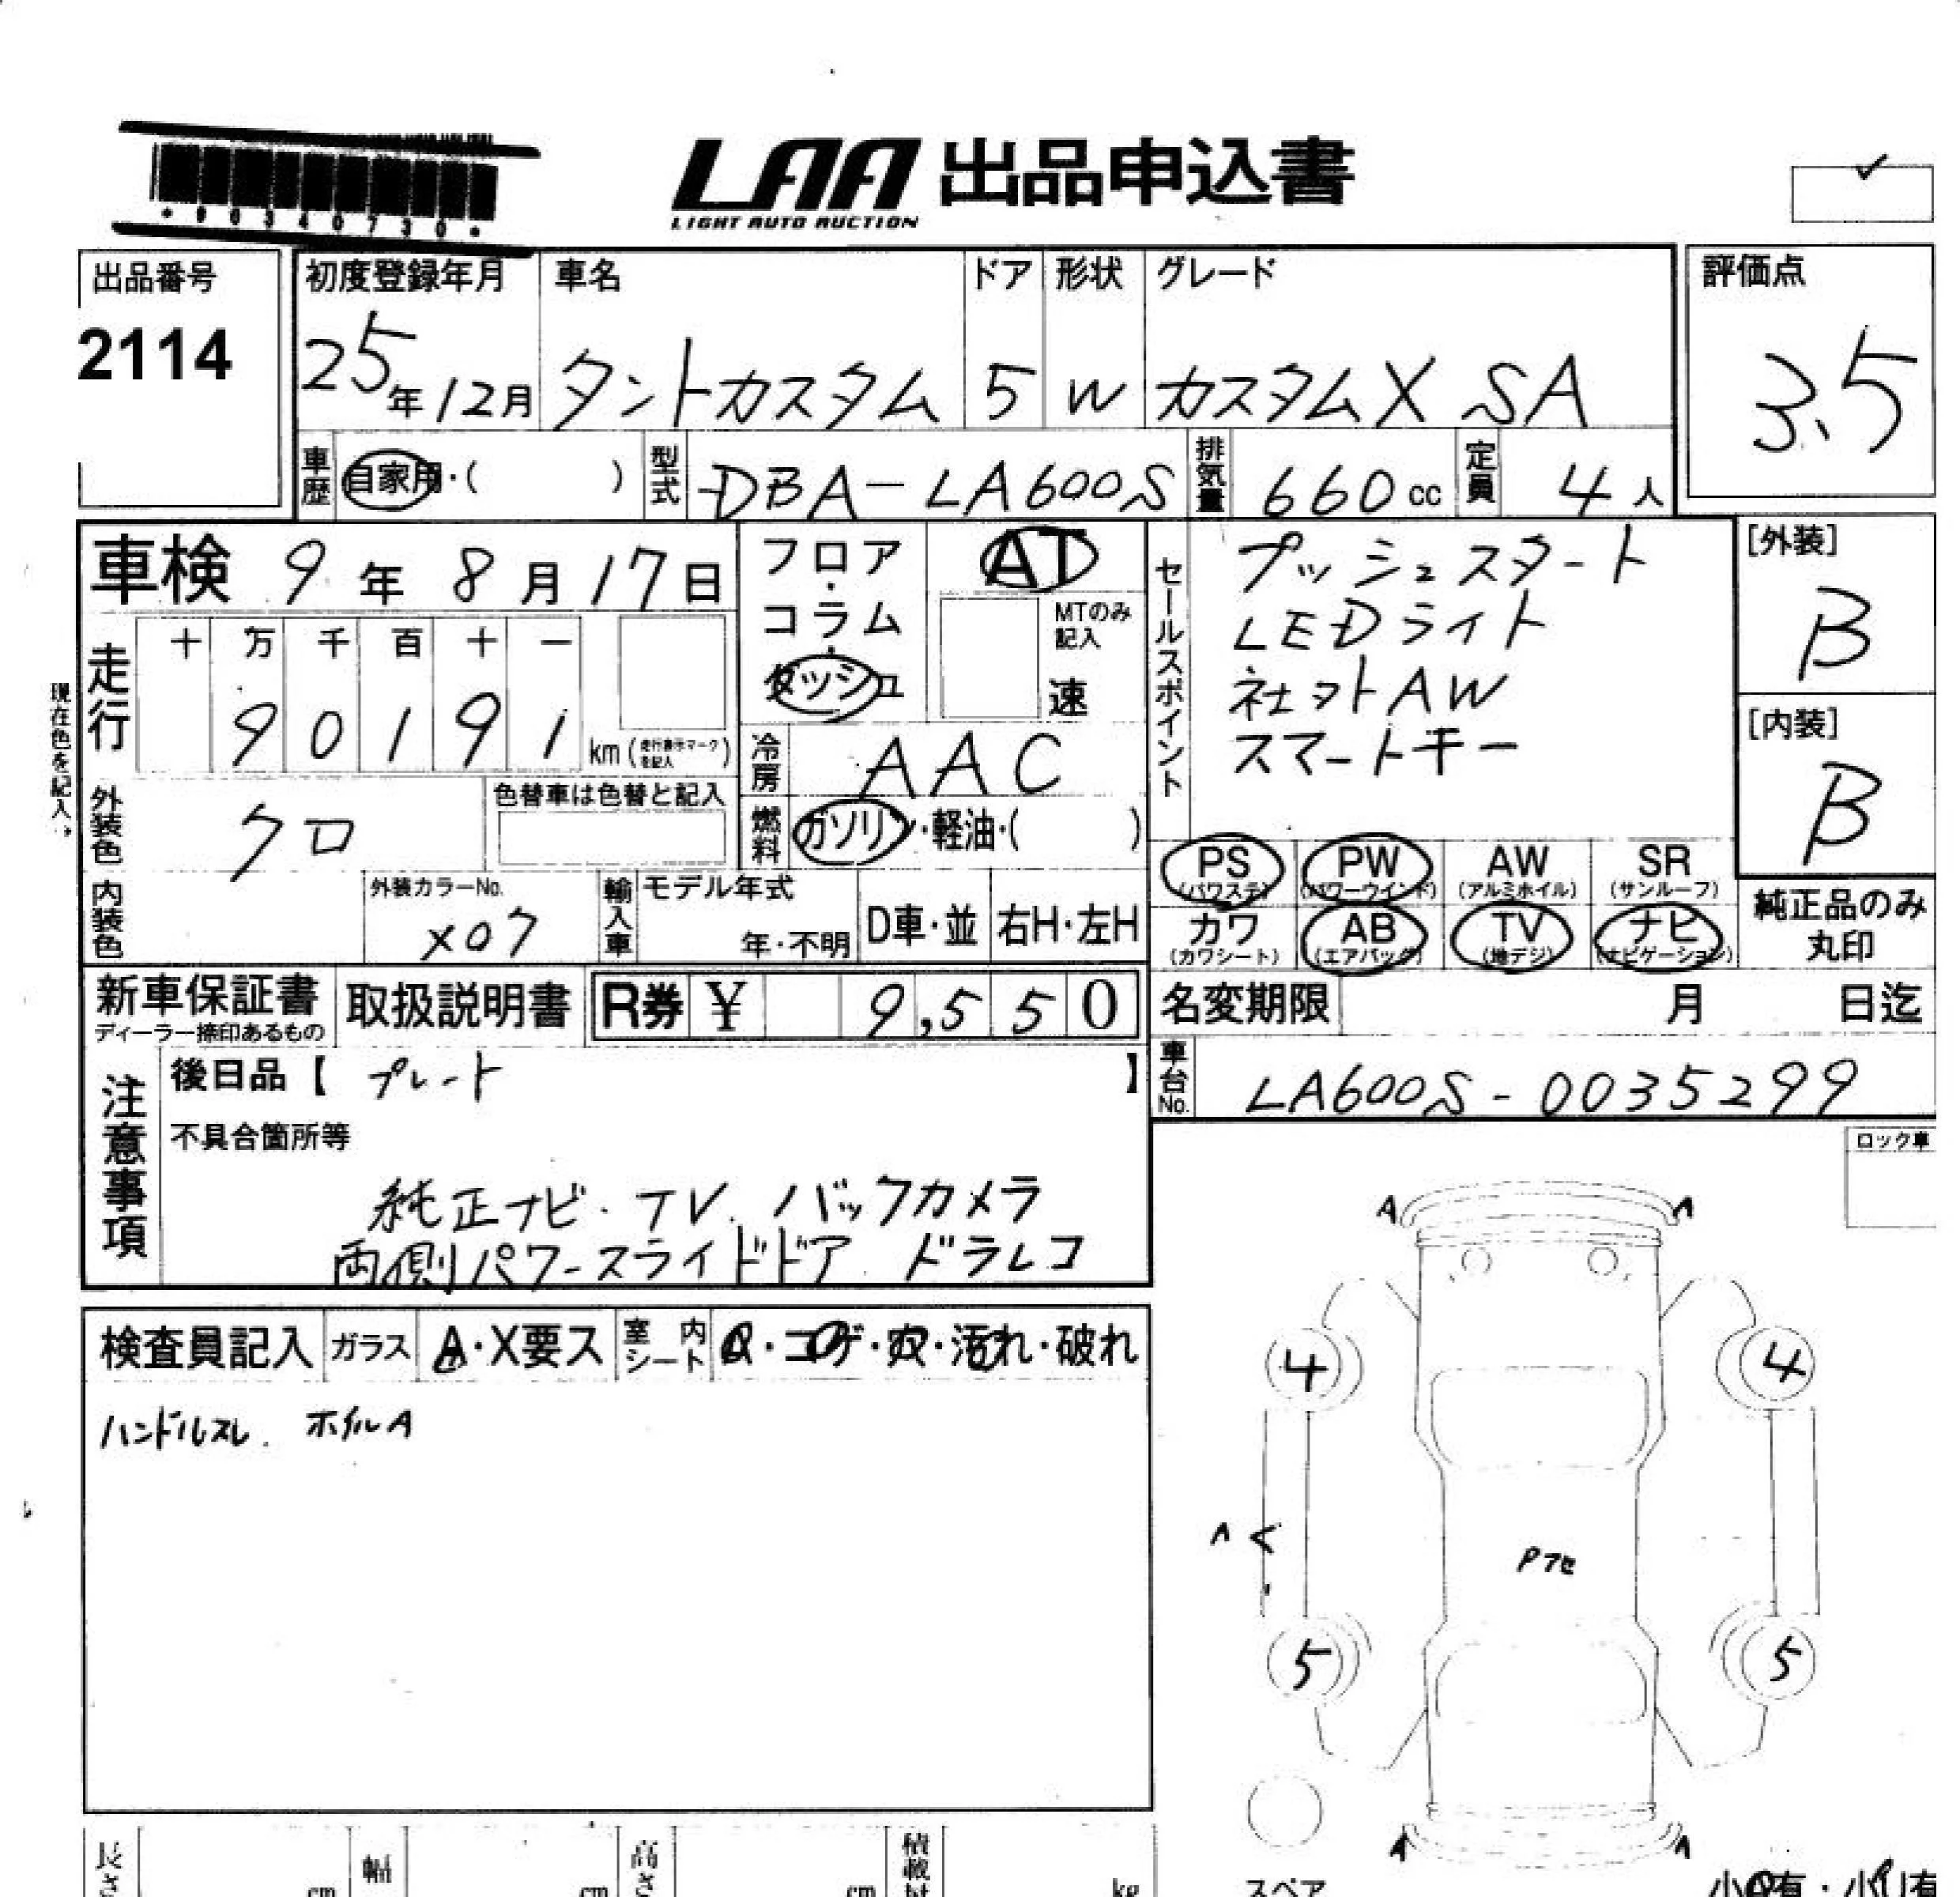 LAA 出品申込書
LIGHT AUTO AUCTION
*00340730*
出品番号
2114
初度登録年月
25年12月
車名
タントカスタム
ドア
5
形状
W
グレード
カスタムX SA
評価点
3.5
車歴
自家用・( )
型式
DBA-LA600S
排気量
660cc
定員
4人
車検 9年8月17日
現在色を記入。
走行
十 万 千 百 十 一
9 0 1 9 1 km (走行表示マークを記入)
フロア・コラム・ダッシュ
AT
MTのみ記入
速
冷房
AAC
燃料
ガソリン・軽油・( )
外装色
クロ
色替車は色替と記入
内装色
外装カラーNo.
X07
輸入車
モデル年式
年・不明
D車・並
右H・左H
セールスポイント
プッシュスタート
LEDライト
社外AW
スマートキー
[外装]
B
[内装]
B
PS (パワステ)
PW (パワーウインド)
AW (アルミホイル)
SR (サンルーフ)
カワ (カワシート)
AB (エアバック)
TV (地デジ)
ナビ (ナビゲーション)
純正品のみ
丸印
新車保証書
ディーラー捺印あるもの
取扱説明書
R券 ¥ 9,550
名変期限 月 日迄
車台No.
LA600S-0035299
注意事項
後日品【 プレート 】
不具合箇所等
純正ナビ・TV. バックカメラ
両側パワースライドドア ドラレコ
ロック車
検査員記入
ガラス
A・X要ス
室内シート
コゲ・穴・汚れ・破れ
ハンドルスレ. ホイルA
A A
4 4
Pフセ
5 5
A A
スペア
長さ cm
幅 cm
高さ cm
積載 kg